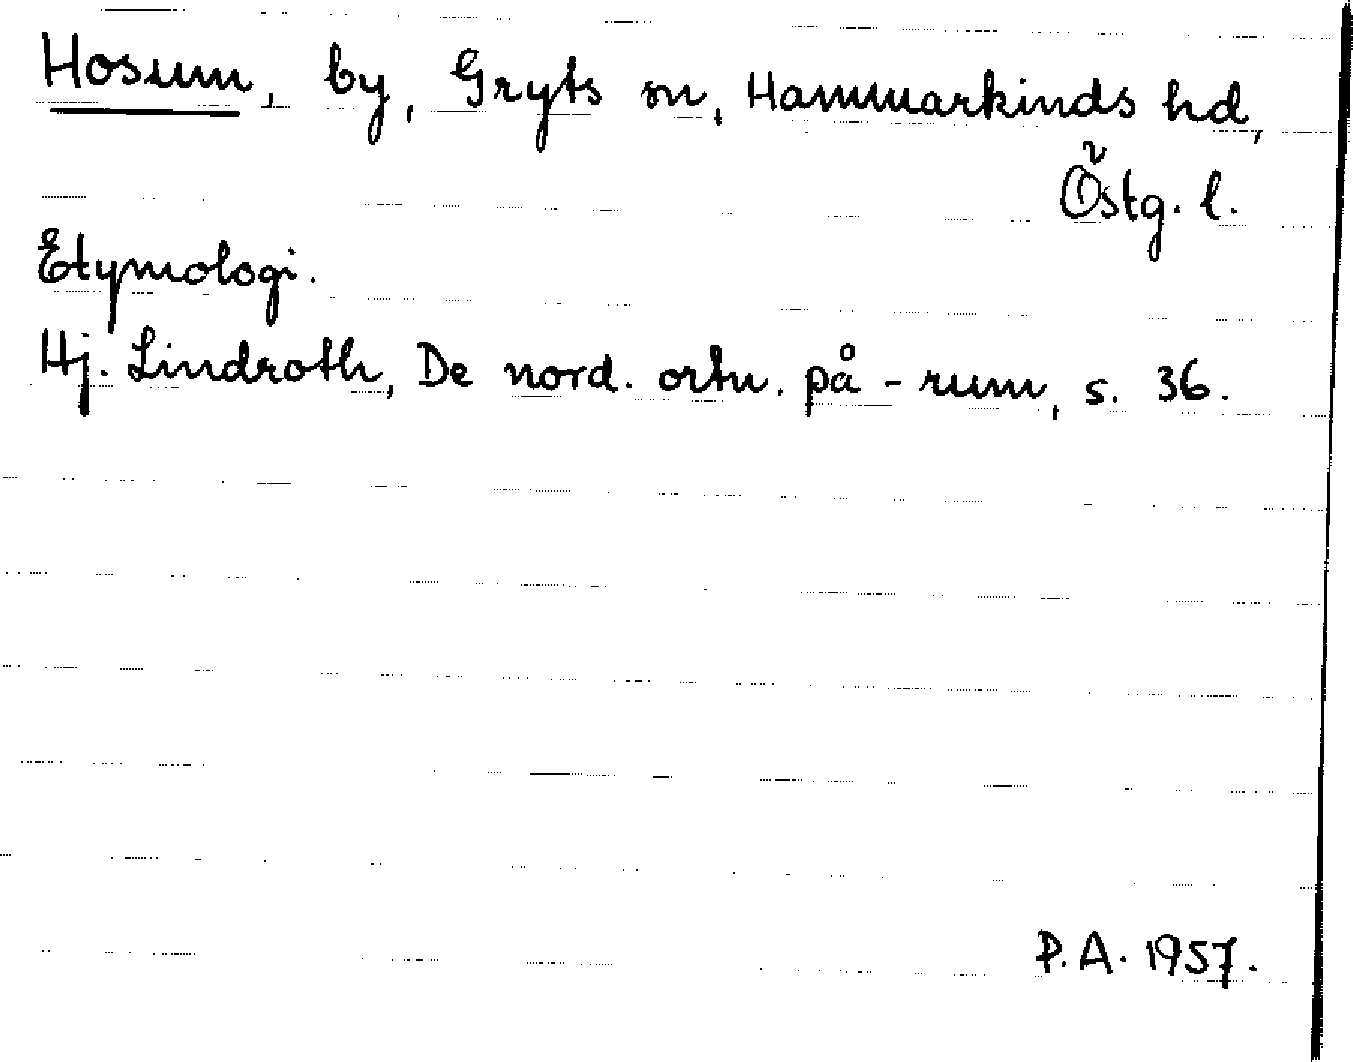 Hosum, by, Gryts sn, Hammarkinds hd,
Östg. l.
Etymologi.
Hj. Lindroth, De nord. ortn. på -rum, s. 36.
P. A. 1957.